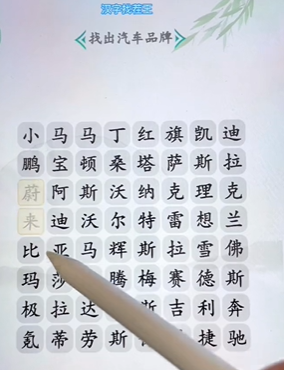 汉字找茬王
找出汽车品牌
小马马丁红旗凯迪
鹏宝顿桑塔萨斯拉
蔚阿斯沃纳克理克
来迪沃尔特雷想兰
比亚马辉斯拉雪佛
玛莎腾梅赛德斯
极拉达斯吉利奔
氪蒂劳斯捷驰